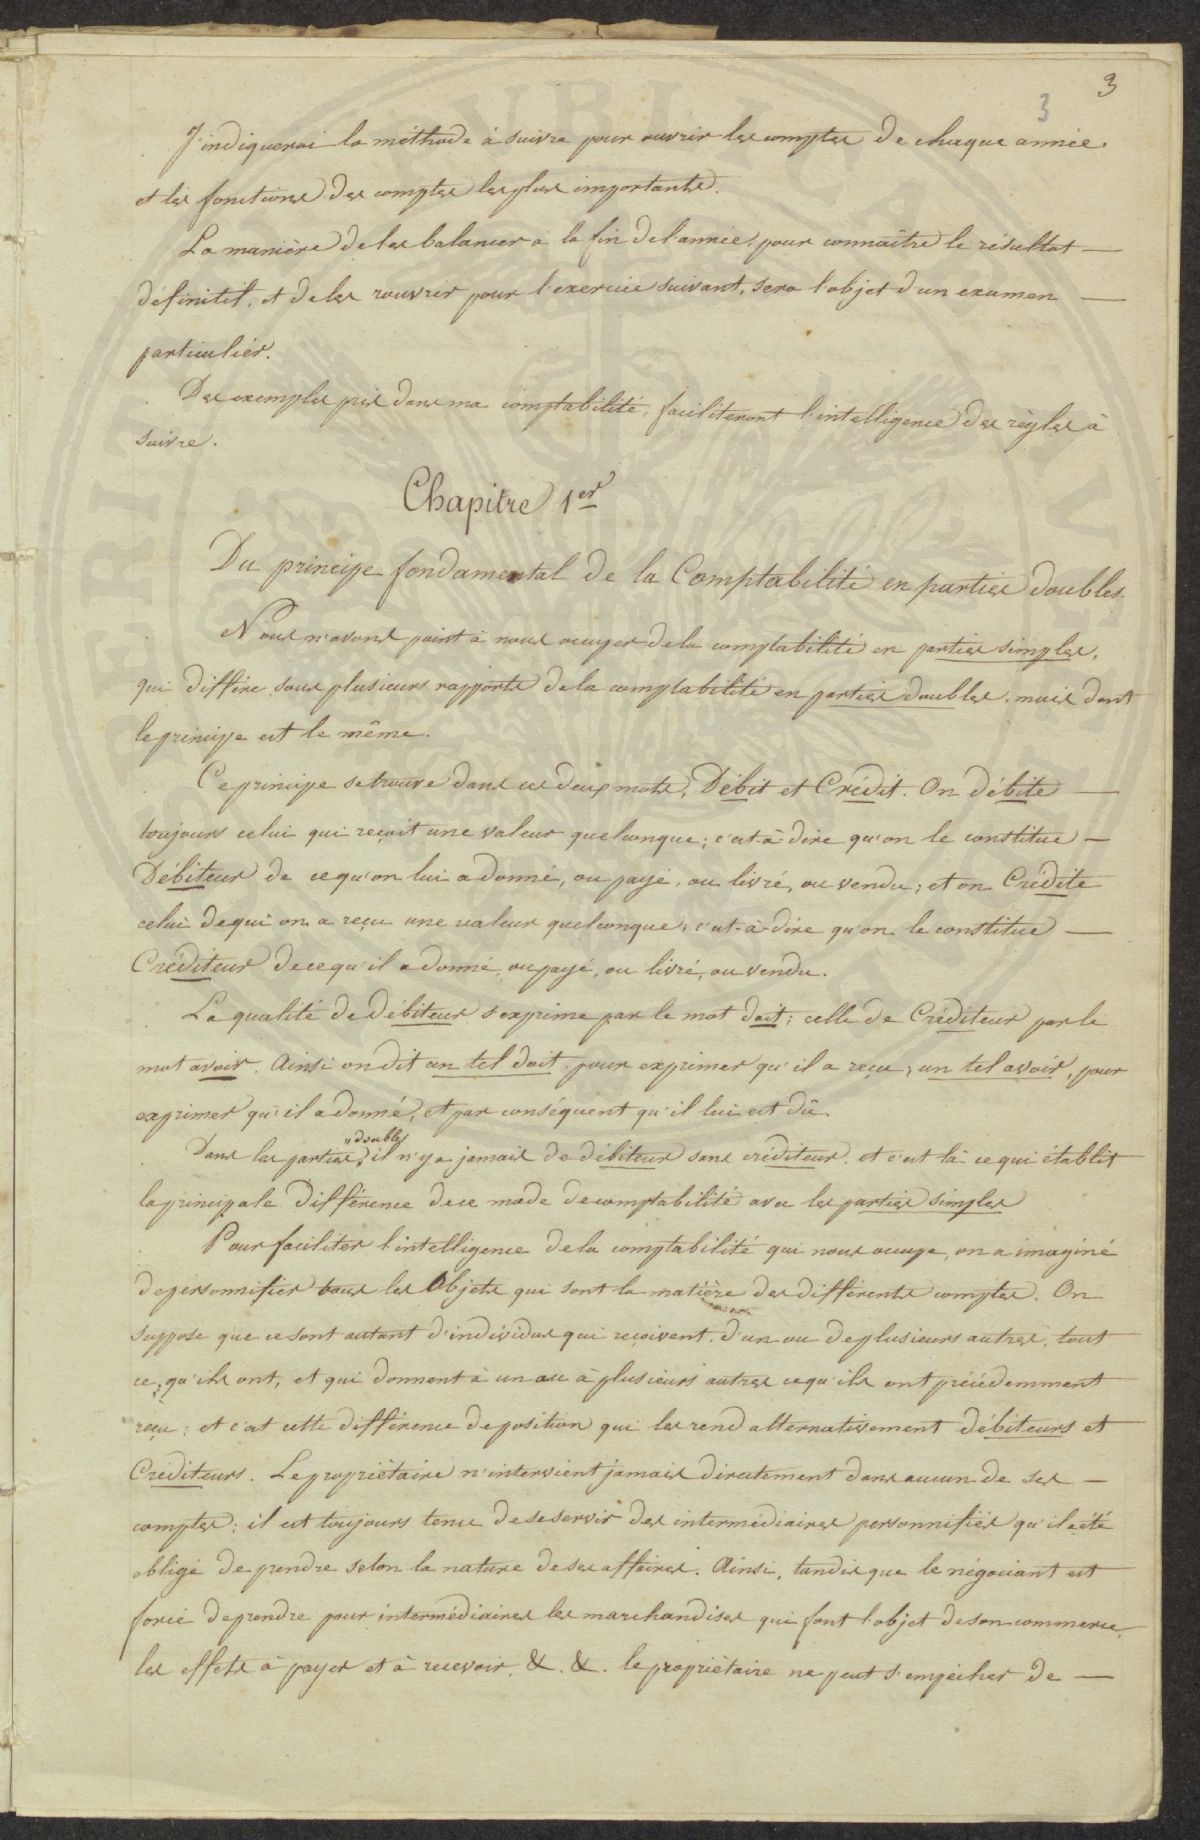 3
3
J'indiquerai la méthode à suivre pour ouvrir les comptes de chaque année,
et les fonctions des comptes les plus importants.
La manière de les balancer à la fin de l'année, pour connaître le résultat —
définitif, et de les rouvrir pour l'exercice suivant, sera l'objet d'un examen —
particulier.
Des exemples pris dans ma comptabilité, faciliteront l'intelligence des règles à
suivre.
Chapitre 1er
Du principe fondamental de la Comptabilité en parties doubles.
Nous n'avons point à nous occuper de la comptabilité en parties simples,
qui diffère sous plusieurs rapports de la comptabilité en parties doubles, mais dont
le principe est le même.
Ce principe se trouve dans ces deux mots, Débit et Crédit. On débite —
toujours celui qui reçoit une valeur quelconque; c'est-à-dire qu'on le constitue —
Débiteur de ce qu'on lui a donné, ou payé, ou livré, ou vendu; et on Crédite
celui de qui on a reçu une valeur quelconque; c'est-à-dire qu'on le constitue —
Créditeur de ce qu'il a donné, ou payé, ou livré, ou vendu.
La qualité de débiteur s'exprime par le mot doit; celle de Créditeur par le
mot avoir. Ainsi on dit un tel doit, pour exprimer qu'il a reçu; un tel avoir, pour
exprimer qu'il a donné, et par conséquent qu'il lui est dû.
"doubles
Dans les parties, il n'y a jamais de débiteur sans créditeur, et c'est là ce qui établit
la principale différence de ce mode de comptabilité avec les parties simples
Pour faciliter l'intelligence de la comptabilité qui nous occupe, on a imaginé
de personnifier tous les Objets qui sont la matière des différents comptes. On
suppose que ce sont autant d'individus qui reçoivent, d'un ou de plusieurs autres, tout
ce qu'ils ont, et qui donnent à un ou à plusieurs autres ce qu'ils ont précédemment
reçu; et c'est cette différence de position qui les rend alternativement débiteurs et
Créditeurs. Le propriétaire n'intervient jamais directement dans aucun de ses —
comptes; il est toujours tenu de se servir des intermédiaires personnifiés qu'il a été
obligé de prendre selon la nature de ses affaires. Ainsi, tandis que le négociant est
forcé de prendre pour intermédiaires les marchandises qui font l'objet de son commerce,
les effets à payer et à recevoir, &. &. le propriétaire ne peut s'empêcher de —